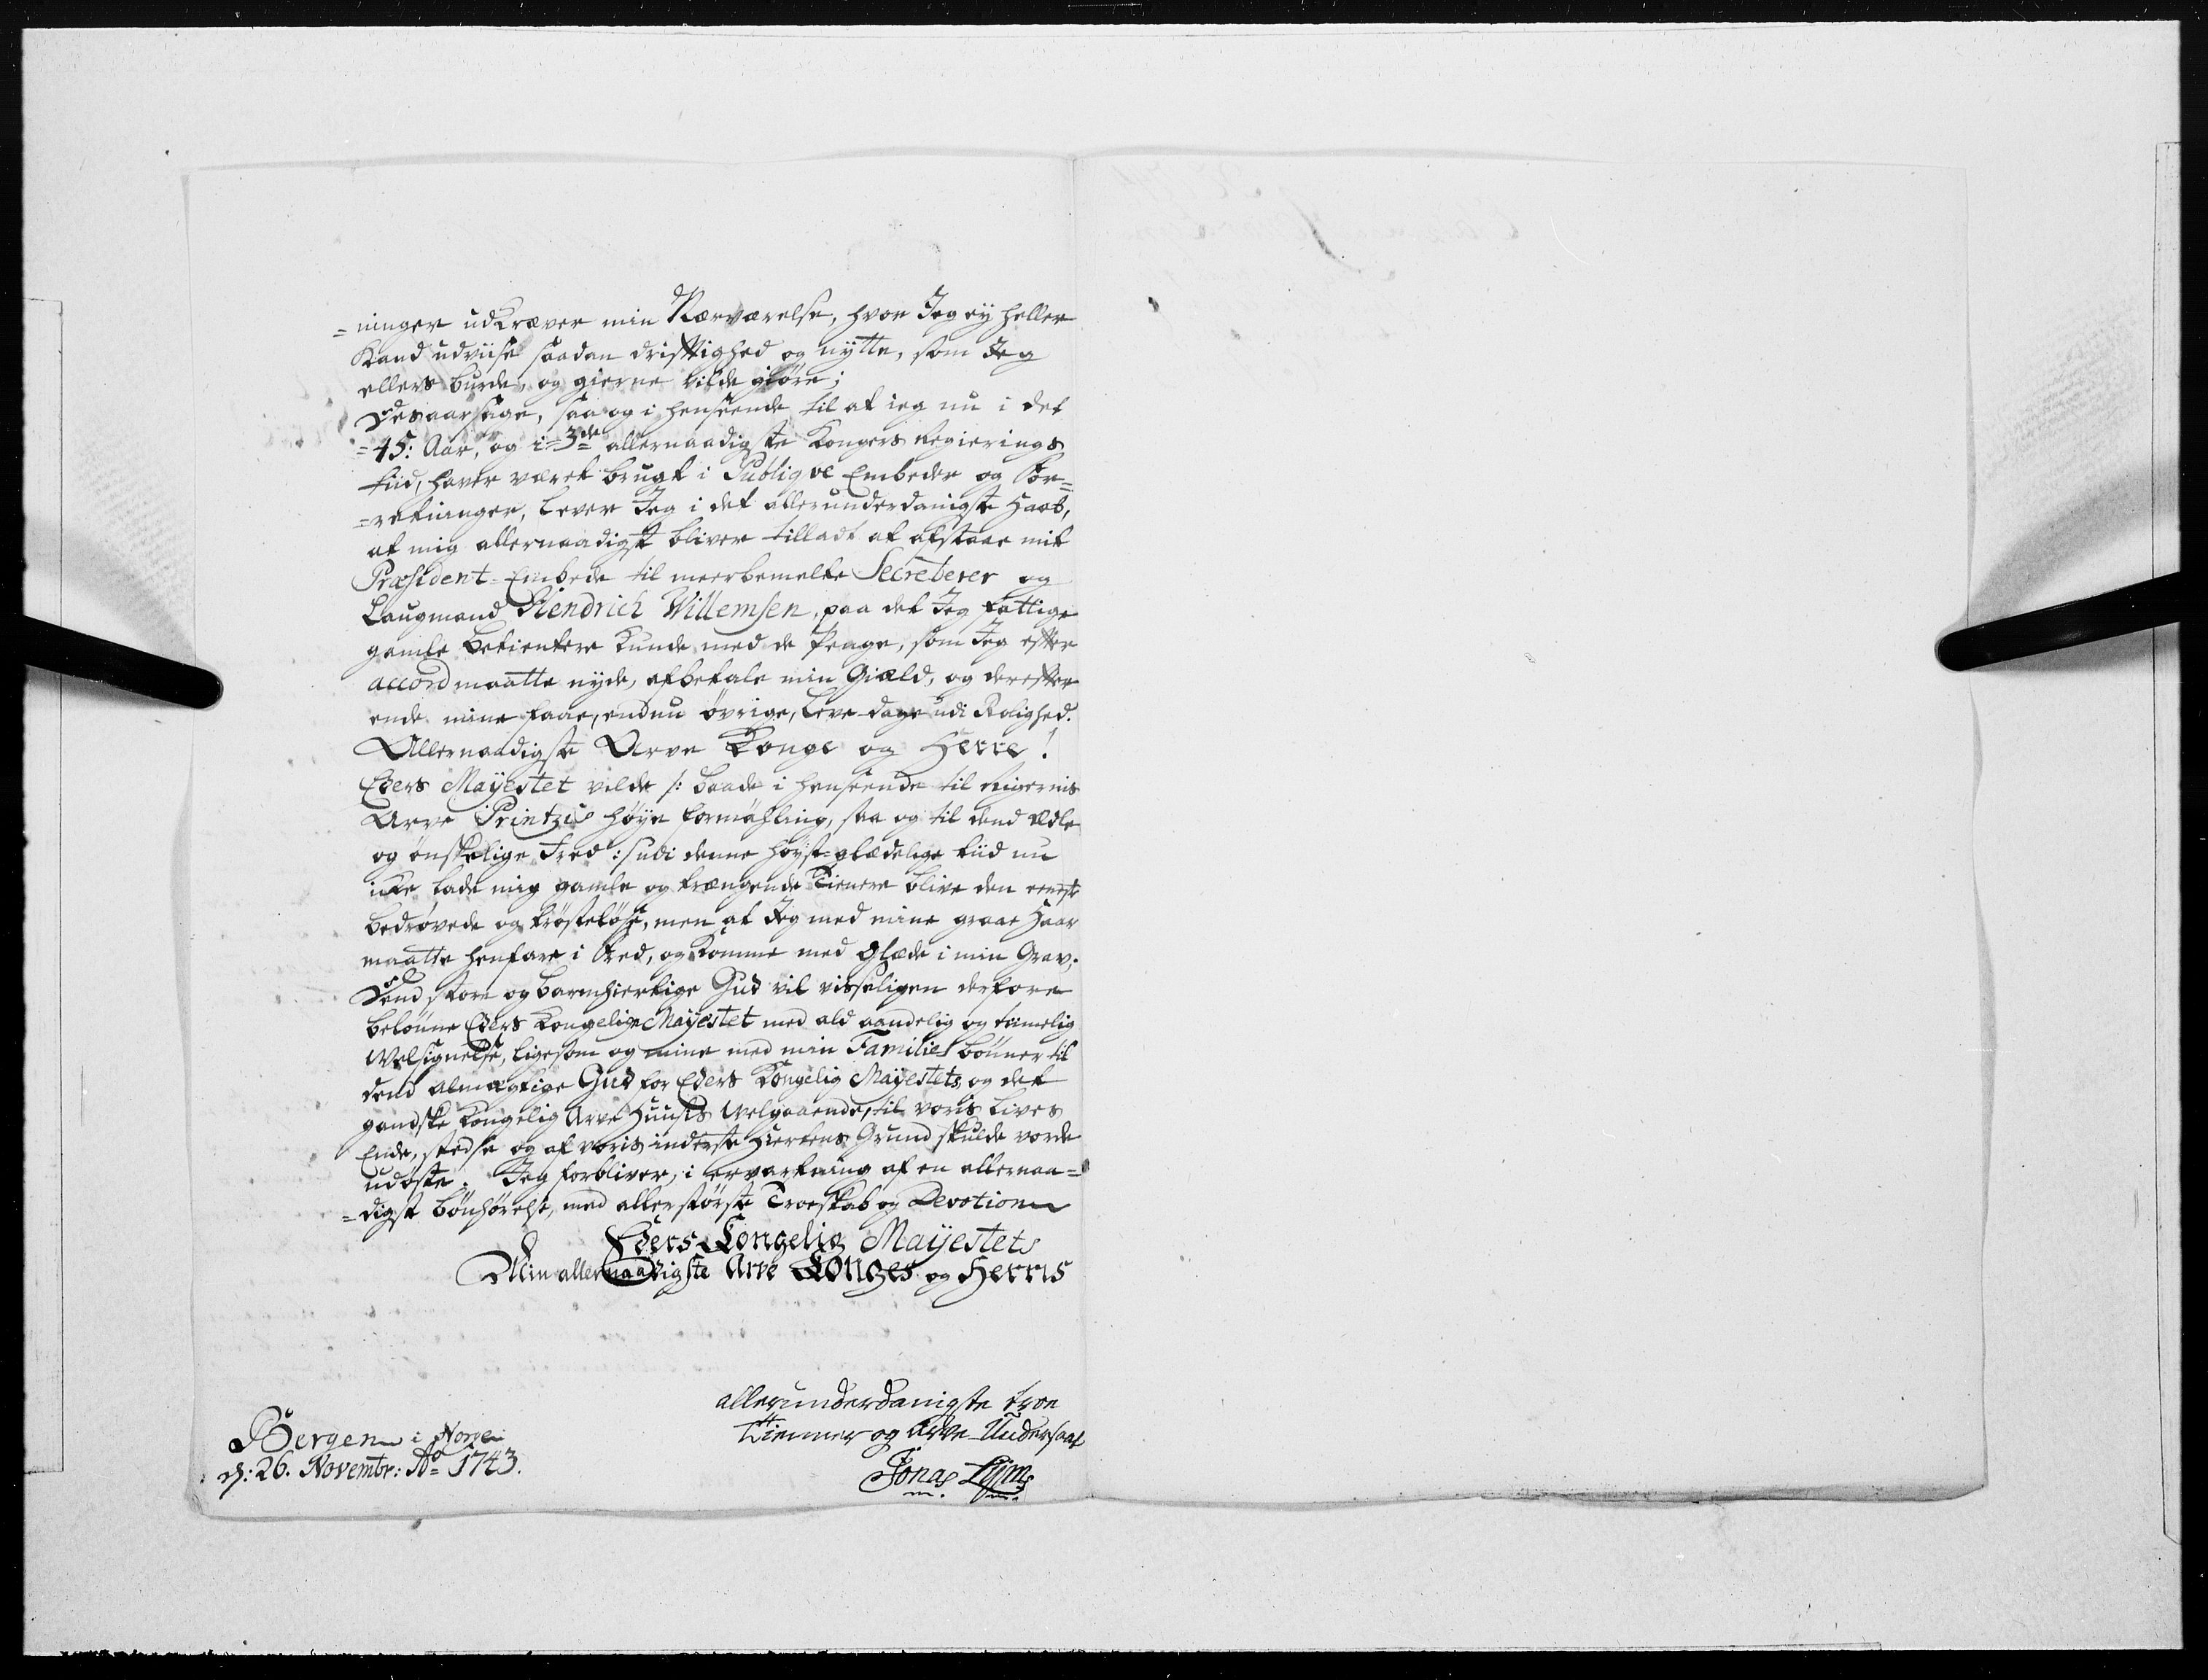 =ninger udkræver min Nærværelse, hvor Jeg ey heller
Kand udviise saadan driftighed og nytte, som Jeg
ellers burde, og gierne vilde giöre;
Desaarsage, saa og i henseende til at ieg nu i det
=45: Aar, og i =3de allernaadigste Kongers Regierings
tiid, haver været brugt i Publiqve Embeder og For=
=retninger, lever Jeg i det allerunderdanigste Haab,
at mig allernaadigst bliver tilladt at afstaae mit
Præsident-Embede til meerbemelte Secreterer og
Laugmand Hendrich Willemsen, paa det Jeg fattige
gamle betientere kunde med de Penge, som Jeg efter
accord maatte nyde, afbetale min Giæld, og derefter
ende mine faae, endnu övrige, Leve-dage udi Rolighed.
Allernaadigste Arve Konge og Herre!
Eders Mayestet vilde /: baade i henseende til Rigernis
Arve Printzis höye formæhling, saa og til dend ædle
og önskelige Fred :/ udi denne höyst-glædelige tiid nu
icke lade mig gamle og trængende Tienere blive den eeneste
bedrövede og tröstelöse, men at Jeg med mine graae Haar
maatte henfare i Fred, og komme med Glæde i min Grav;
Dend store og barmhiertige Gud vil visseligen derfore
belönne Eders Kongelige Mayestet med ald aandelig og timelig
Velsignelse, ligesom og mine med min Families bönner til
dend Almægtige Gud for Eders Kongelig Mayestets og det
gandske Kongelig Arve Huuses Velgaaende, til voris Lives
Ende, stedse og af voris inderste Hiertens Grund skulde vorde
udöste. Jeg forbliver, i ervartning af en allernaa=
=digst bönhörelse, med allerstörste Troeskab og Devotion
Eders Kongelig Mayestets
Min allernaadigste Arve Konges og Herris
allerunderdanigste troe
Tienner og Arve-Undersaat
Jonas Lym
Bergen i Norge
d: 26. Novembr: Ao 1743.